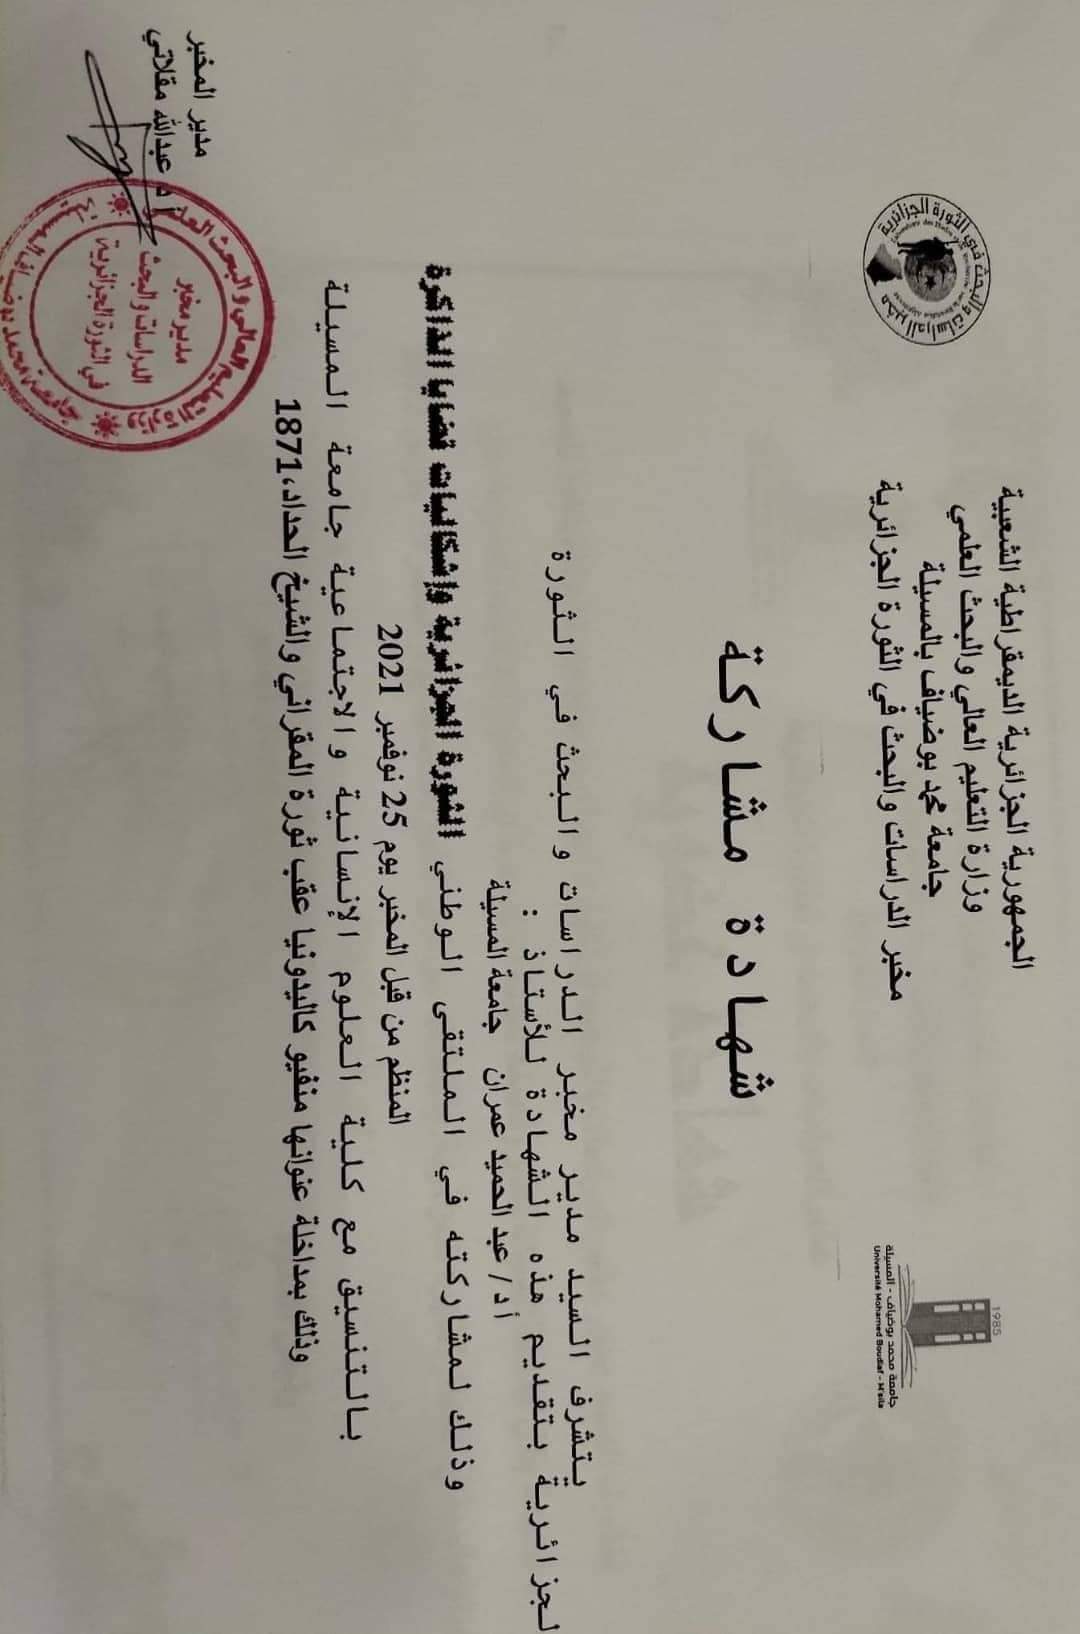 الجمهورية الجزائرية الديمقراطية الشعبية
وزارة التعليم العالي والبحث العلمي
جامعة محمد بوضياف بالمسيلة
مخبر الدراسات والبحث في الثورة الجزائرية
مخبر الدراسات والبحث في الثورة الجزائرية
1985
جامعة محمد بوضياف - المسيلة
Université Mohamed Boudiaf - M'sila
شهادة مشاركة
يتشرف السيد مدير مخبر الدراسات والبحث في الثورة
لجزائرية بتقديم هذه الشهادة للأستاذ :
أ.د/ عبد الحميد عمران جامعة المسيلة
وذلك لمشاركته في الملتقى الوطني الثورة الجزائرية وإشكاليات قضايا الذاكرة
المنظم من قبل المخبر يوم 25 نوفمبر 2021
بالتنسيق مع كلية العلوم الإنسانية والاجتماعية جامعة المسيلة
وذلك بمداخلة عنوانها منفيو كاليدونيا عقب ثورة المقراني والشيخ الحداد،1871
مدير المخبر
أ.د عبدالله مقلاتي
وزارة التعليم العالي والبحث العلمي
جامعة محمد بوضياف المسيلة
مدير مخبر
الدراسات والبحث
في الثورة الجزائرية